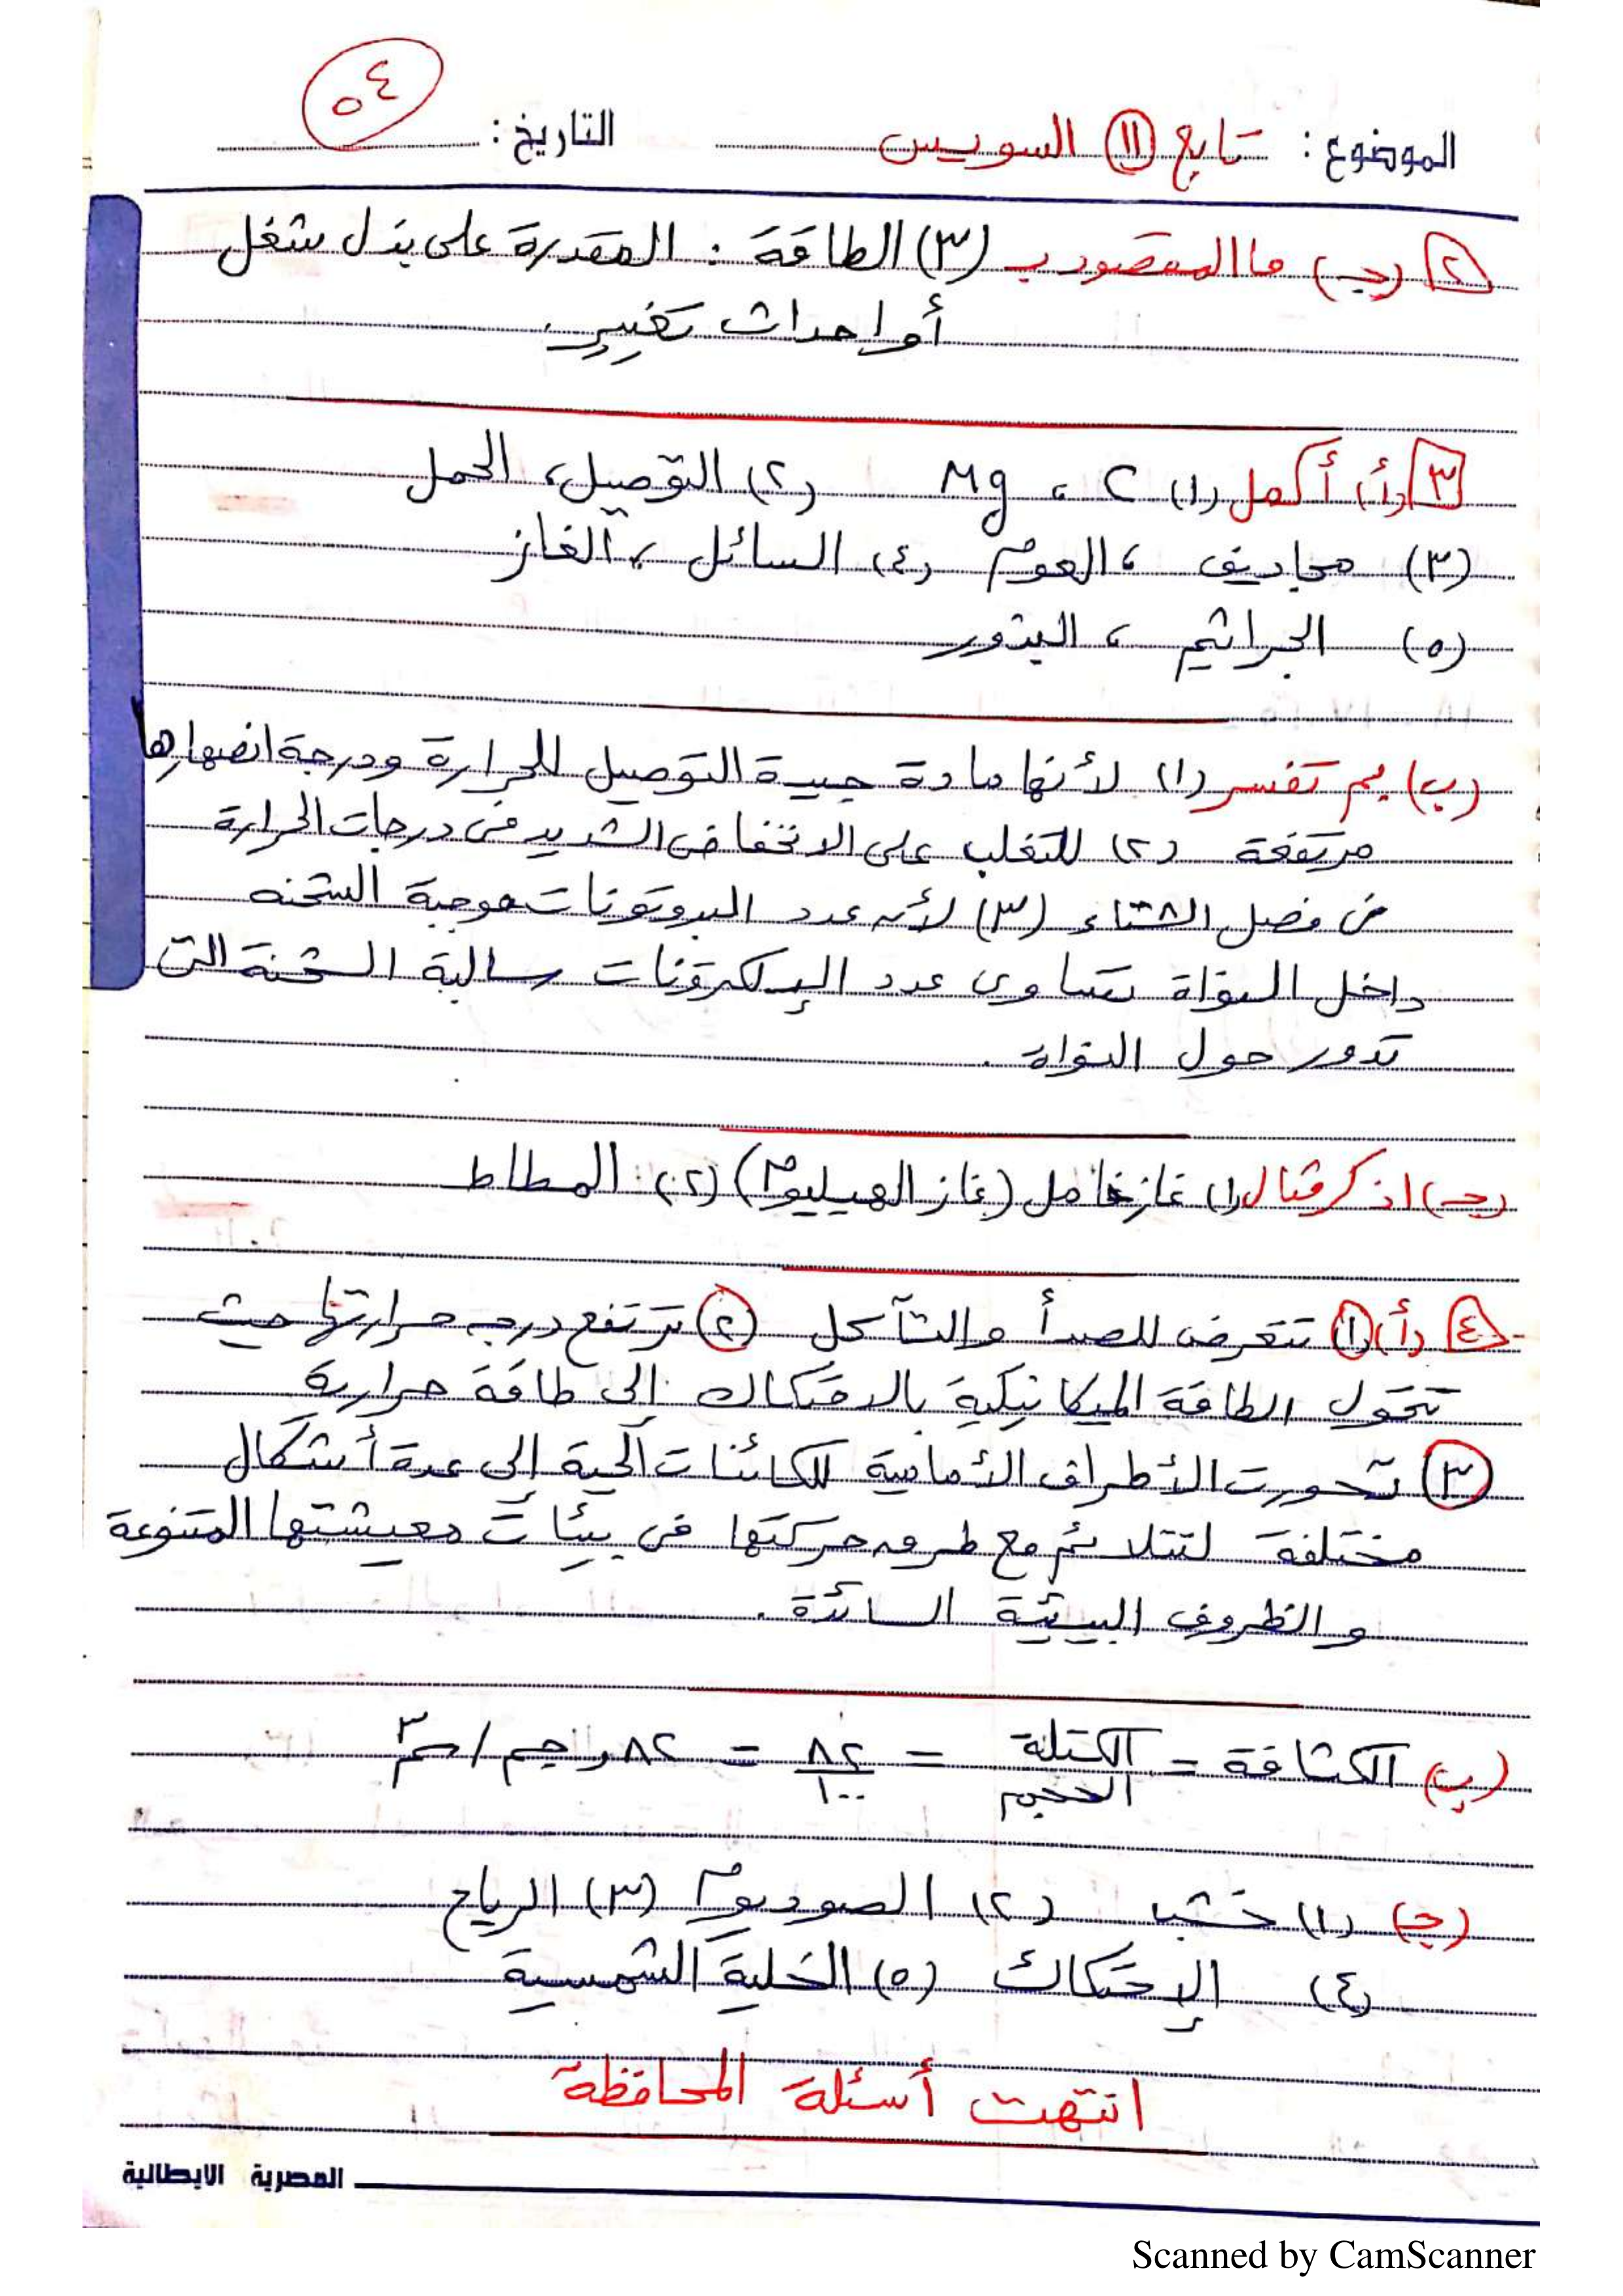 ٥٤
الموضوع: تابع (١١) السويس التاريخ:
٢ (جـ) ما المقصود بـ (٣) الطاقة : المقدرة على بذل شغل
أو احداث تغيير.
٣ (أ) أكمل (١) Mg ، C (٢) التوصيل، الحمل
(٣) مجاديف ، العوم (٤) السائل ، الغاز
(٥) الجراثيم ، البذور
(ب) بم تفسر (١) لأنها مادة جيدة التوصيل للحرارة ودرجة انصهارها
مرتفعة (٢) للتغلب على الانخفاض الشديد فى درجات الحرارة
فى فصل الشتاء (٣) لأن عدد البروتونات موجبة الشحنه
داخل النواة تساوى عدد الإلكترونات سالبة الشحنة التى
تدور حول النواة.
(جـ) اذكر مثال (١) غاز خامل (غاز الهيليوم) (٢) المطاط
٤ (أ) (١) تتعرض للصدأ والتآكل (٢) ترتفع درجه حرارتها حيث
تتحول الطاقة الميكانيكية بالاحتكاك إلى طاقة حرارية
(٣) تحورت الأطراف الأمامية للكائنات الحية إلى عدة أشكال
مختلفة لتتلائم مع طرق حركتها فى بيئات معيشتها المتنوعة
والظروف البيئية السائدة.
(ب) الكثافة = الكتلة / الحجم = ٨٢ / ١٠٠ = ٨٢ر جم / سم٣
(جـ) (١) خشب (٢) الصوديوم (٣) الرياح
(٤) الإحتكاك (٥) الخلية الشمسية
انتهت أسئلة المحافظة
المصرية الايطالية
Scanned by CamScanner